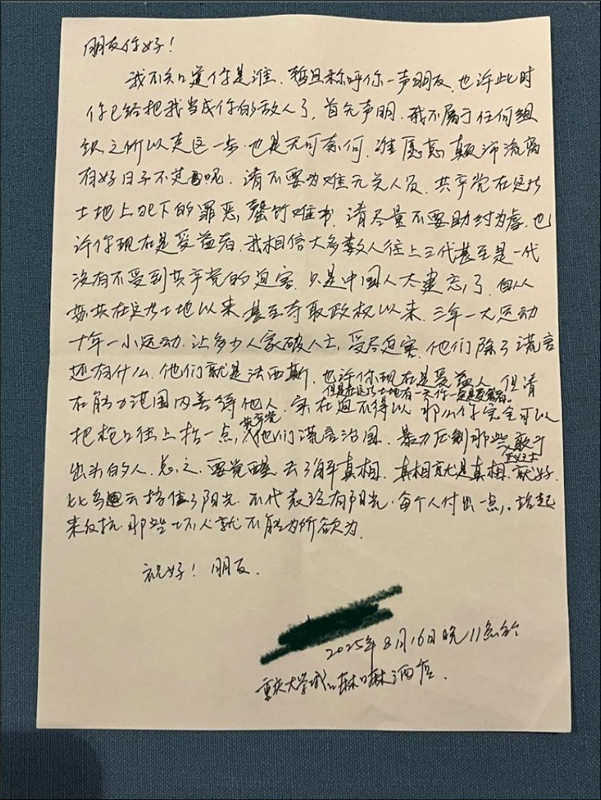 朋友你好！
我不知道你是谁，暂且称呼你一声朋友，也许此时
你已给把我当成你的敌人了，首先声明，我不属于任何组
织之所以走这一步也是无可奈何，谁愿意颠沛流离
有好日子不过呢，请不要为难无关人员，共产党在这片
土地上犯下的罪恶，罄竹难书，请尽量不要助纣为虐，也
许你现在是受益者，我相信大多数人往上三代甚至是一代
没有不受到共产党的迫害，只是中国人太健忘了，自从
苏共在这片土地以来甚至夺取政权以来，三年一大运动
十年一小运动，让多少人家破人亡，受尽迫害，他们除了谎言
还有什么，他们就是法西斯，也许你现在是受益人，但请
但是在这片土地有一天你一定是受害者。
在能力范围内善待他人，实在迫不得以，那么你完全可以
把枪口往上抬一点，共产党他们谎言治国，暴力压制那些敢于
出头的人，总之，要觉醒去了解真相，真相就是真相，就好
比乌云挡住了阳光，不代表没有阳光，每个人付出一点，站起
来反抗，那些坏人就不能为所欲为，
祝好！朋友，
2025年8月16日晚11点于
重庆大学城 酒店，